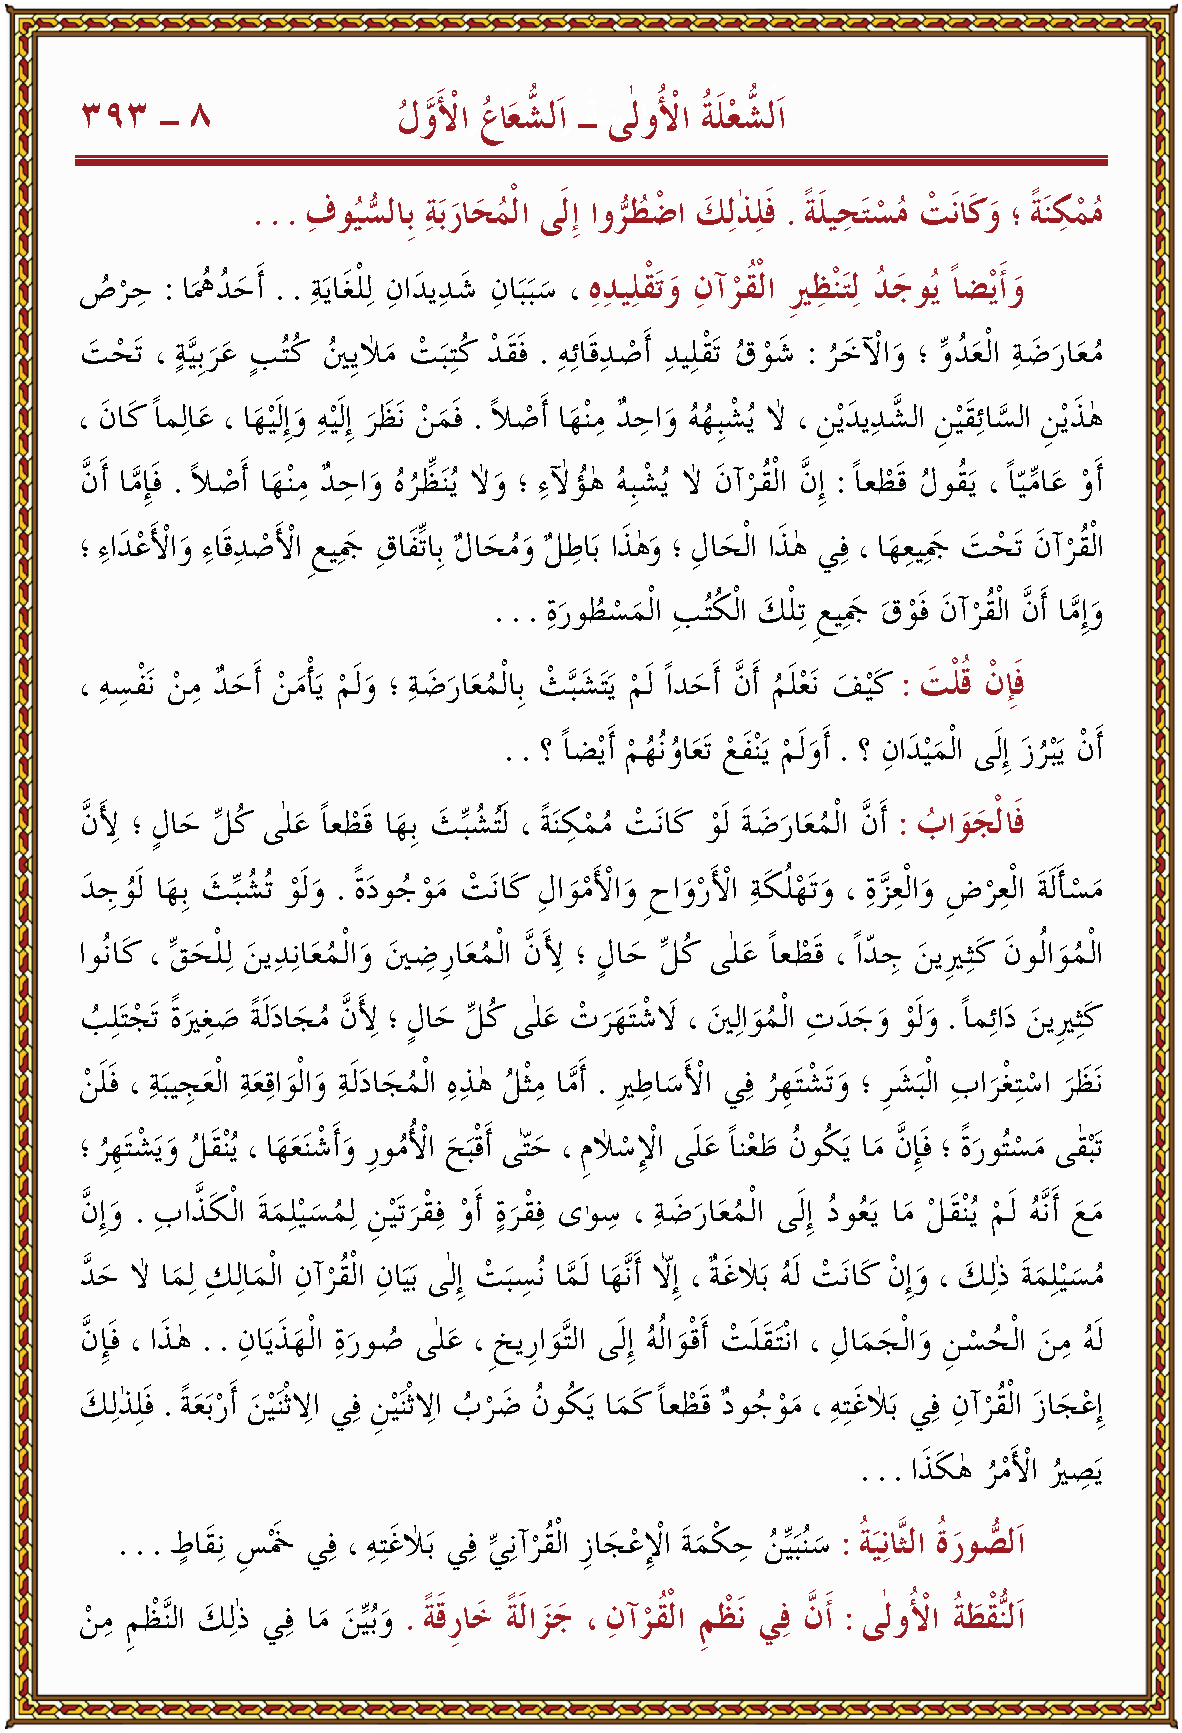 اَلشُّعْلَةُ الْأُولٰى – اَلشُّعَاعُ الْأَوَّلُ ٨ – ٣٩٣
مُمْكِنَةً ؛ وَكَانَتْ مُسْتَحِيلَةً . فَلِذٰلِكَ اضْطُرُّوا إِلَى الْمُحَارَبَةِ بِالسُّيُوفِ . . .
وَأَيْضاً يُوجَدُ لِتَنْظِيرِ الْقُرْآنِ وَتَقْلِيدِهِ ، سَبَبَانِ شَدِيدَانِ لِلْغَايَةِ . . أَحَدُهُمَا : حِرْصُ
مُعَارَضَةِ الْعَدُوِّ ؛ وَالْآخَرُ : شَوْقُ تَقْلِيدِ أَصْدِقَائِهِ . فَقَدْ كُتِبَتْ مَلَايِينُ كُتُبٍ عَرَبِيَّةٍ ، تَحْتَ
هٰذَيْنِ السَّائِقَيْنِ الشَّدِيدَيْنِ ، لَا يُشْبِهُهُ وَاحِدٌ مِنْهَا أَصْلاً . فَمَنْ نَظَرَ إِلَيْهِ وَإِلَيْهَا ، عَالِماً كَانَ ،
أَوْ عَامِّيّاً ، يَقُولُ قَطْعاً : إِنَّ الْقُرْآنَ لَا يُشْبِهُ هٰؤُلَآءِ ؛ وَلَا يُنَظِّرُهُ وَاحِدٌ مِنْهَا أَصْلاً . فَإِمَّا أَنَّ
الْقُرْآنَ تَحْتَ جَمِيعِهَا ، فِي هٰذَا الْحَالِ ؛ وَهٰذَا بَاطِلٌ وَمُحَالٌ بِاتِّفَاقِ جَمِيعِ الْأَصْدِقَاءِ وَالْأَعْدَاءِ ؛
وَإِمَّا أَنَّ الْقُرْآنَ فَوْقَ جَمِيعِ تِلْكَ الْكُتُبِ الْمَسْطُورَةِ . . .
فَإِنْ قُلْتَ : كَيْفَ نَعْلَمُ أَنَّ أَحَداً لَمْ يَتَشَبَّثْ بِالْمُعَارَضَةِ ؛ وَلَمْ يَأْمَنْ أَحَدٌ مِنْ نَفْسِهِ ،
أَنْ يَبْرُزَ إِلَى الْمَيْدَانِ ؟ . أَوَلَمْ يَنْفَعْ تَعَاوُنُهُمْ أَيْضاً ؟ . .
فَالْجَوَابُ : أَنَّ الْمُعَارَضَةَ لَوْ كَانَتْ مُمْكِنَةً ، لَتُشُبِّثَ بِهَا قَطْعاً عَلٰى كُلِّ حَالٍ ؛ لِأَنَّ
مَسْأَلَةَ الْعِرْضِ وَالْعِزَّةِ ، وَتَهْلُكَةِ الْأَرْوَاحِ وَالْأَمْوَالِ كَانَتْ مَوْجُودَةً . وَلَوْ تُشُبِّثَ بِهَا لَوُجِدَ
الْمُوَالُونَ كَثِيرِينَ جِدّاً ، قَطْعاً عَلٰى كُلِّ حَالٍ ؛ لِأَنَّ الْمُعَارِضِينَ وَالْمُعَانِدِينَ لِلْحَقِّ ، كَانُوا
كَثِيرِينَ دَائِماً . وَلَوْ وَجَدَتِ الْمُوَالِينَ ، لَاشْتَهَرَتْ عَلٰى كُلِّ حَالٍ ؛ لِأَنَّ مُجَادَلَةً صَغِيرَةً تَجْتَلِبُ
نَظَرَ اسْتِغْرَابِ الْبَشَرِ ؛ وَتَشْتَهِرُ فِي الْأَسَاطِيرِ . أَمَّا مِثْلُ هٰذِهِ الْمُجَادَلَةِ وَالْوَاقِعَةِ الْعَجِيبَةِ ، فَلَنْ
تَبْقٰى مَسْتُورَةً ؛ فَإِنَّ مَا يَكُونُ طَعْناً عَلَى الْإِسْلَامِ ، حَتّٰى أَقْبَحَ الْأُمُورِ وَأَشْنَعَهَا ، يُنْقَلُ وَيَشْتَهِرُ ؛
مَعَ أَنَّهُ لَمْ يُنْقَلْ مَا يَعُودُ إِلَى الْمُعَارَضَةِ ، سِوٰى فِقْرَةٍ أَوْ فِقْرَتَيْنِ لِمُسَيْلِمَةَ الْكَذَّابِ . وَإِنَّ
مُسَيْلِمَةَ ذٰلِكَ ، وَإِنْ كَانَتْ لَهُ بَلَاغَةٌ ، إِلَّا أَنَّهَا لَمَّا نُسِبَتْ إِلٰى بَيَانِ الْقُرْآنِ الْمَالِكِ لِمَا لَا حَدَّ
لَهُ مِنَ الْحُسْنِ وَالْجَمَالِ ، انْتَقَلَتْ أَقْوَالُهُ إِلَى التَّوَارِيخِ ، عَلٰى صُورَةِ الْهَذَيَانِ . . هٰذَا ، فَإِنَّ
إِعْجَازَ الْقُرْآنِ فِي بَلَاغَتِهِ ، مَوْجُودٌ قَطْعاً كَمَا يَكُونُ ضَرْبُ الِاثْنَيْنِ فِي الِاثْنَيْنَ أَرْبَعَةً . فَلِذٰلِكَ
يَصِيرُ الْأَمْرُ هٰكَذَا . . .
اَلصُّورَةُ الثَّانِيَةُ : سَنُبَيِّنُ حِكْمَةَ الْإِعْجَازِ الْقُرْآنِيِّ فِي بَلَاغَتِهِ ، فِي خَمْسِ نِقَاطٍ . . .
اَلنُّقْطَةُ الْأُولٰى : أَنَّ فِي نَظْمِ الْقُرْآنِ ، جَزَالَةً خَارِقَةً . وَبُيِّنَ مَا فِي ذٰلِكَ النَّظْمِ مِنْ